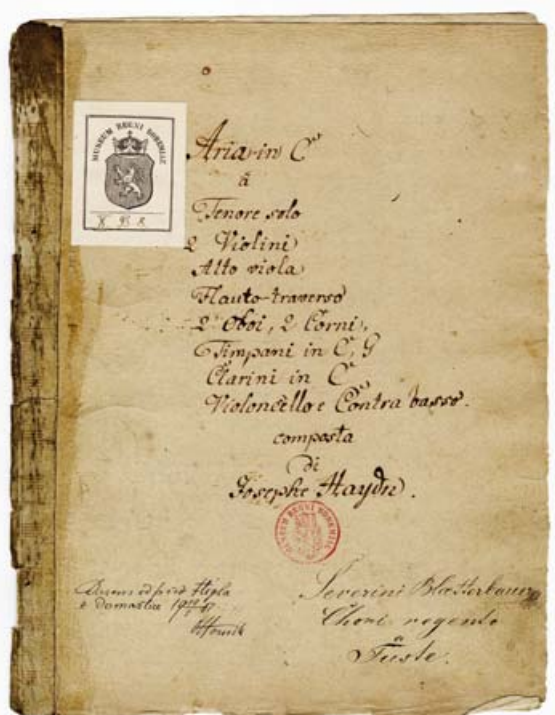 MUSEUM REGNI BOHEMIAE
X 95 8
Aria in C
à
Tenore solo
2 Violini
Alto viola
Flauto-traverso
2 Oboi, 2 Corni,
Timpani in C, G
Clarini in C
Violoncello e Contra basso.
composta
di
Josephe Haydn.
MUSEUM REGNI BOHEMIAE
Severini
Chori regente
à